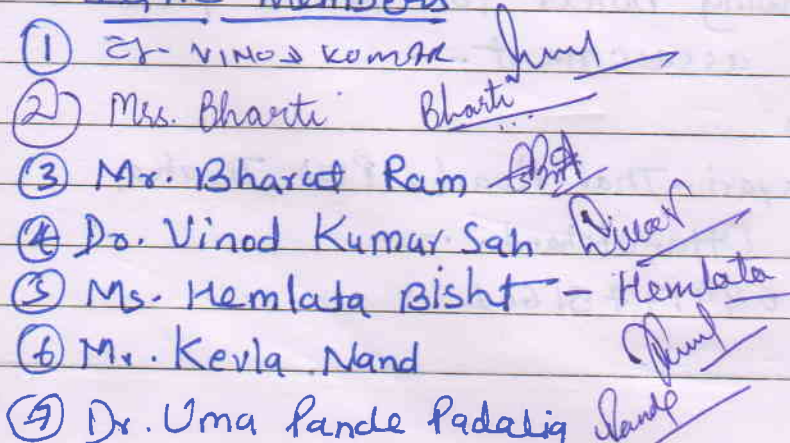 Members
① डा. VINOD KUMAR
② Mrs. Bharti Bharti
③ Mr. Bharat Ram
④ Dr. Vinod Kumar Sah
⑤ Ms. Hemlata Bisht - Hemlata
⑥ Mr. Kevla Nand
⑦ Dr. Uma Pande Padalia Pande